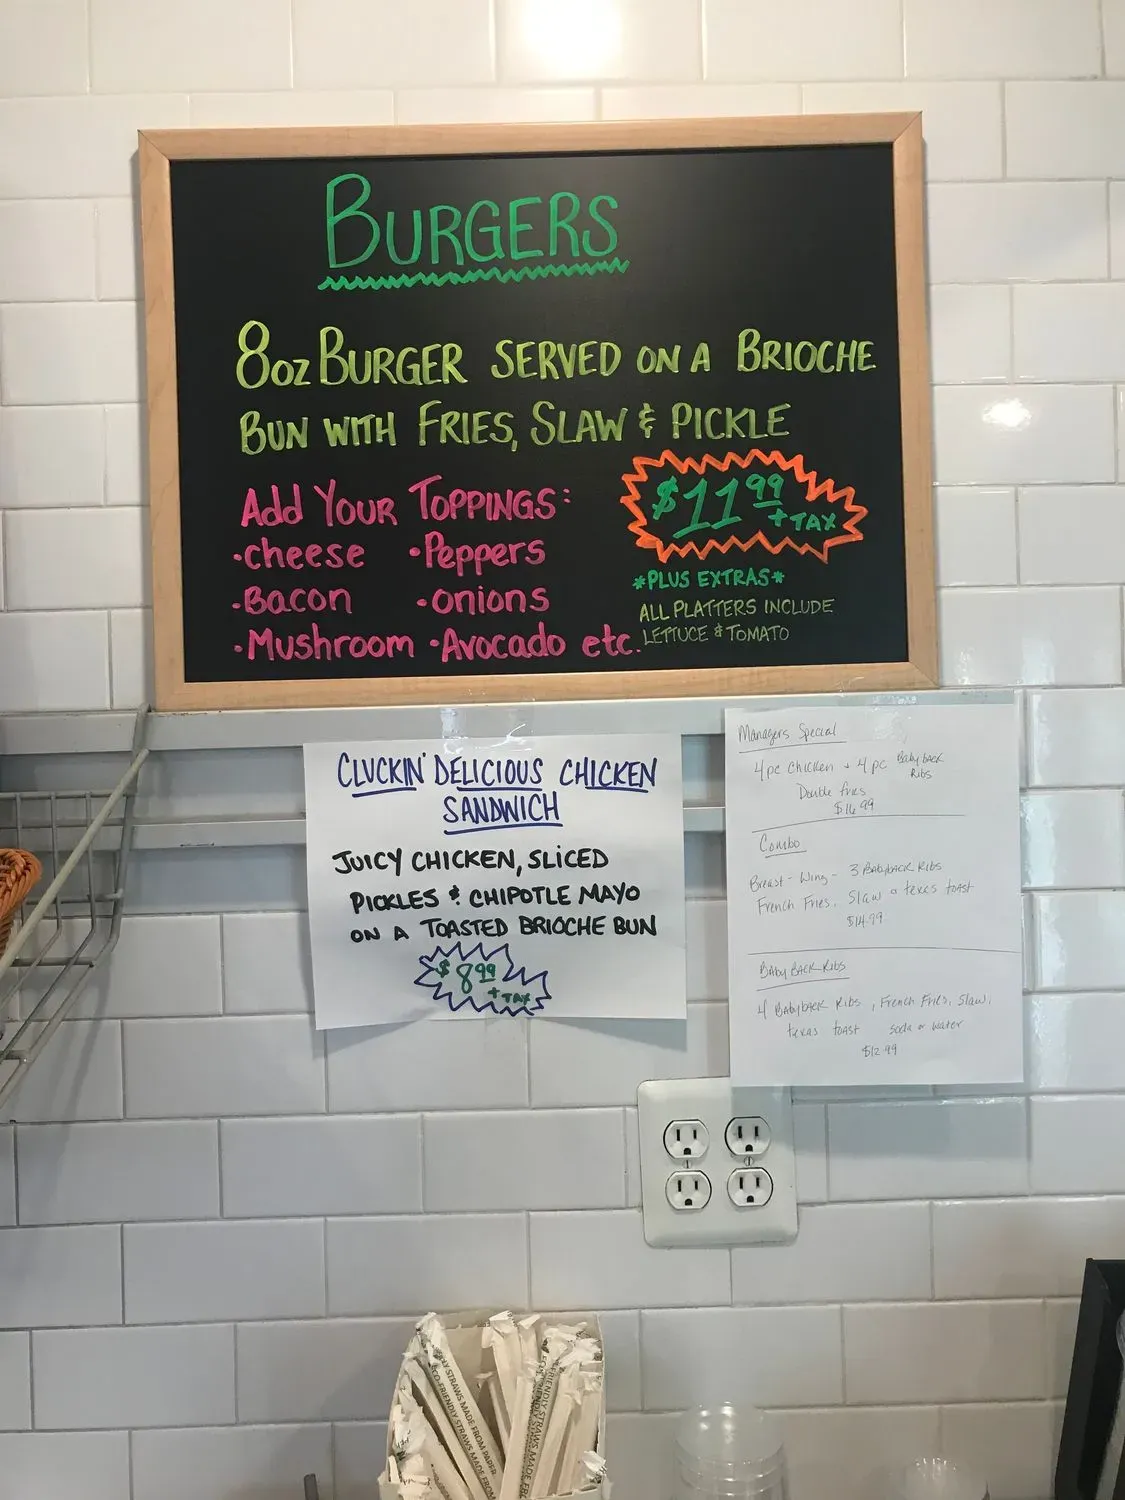 BURGERS
8oz BURGER SERVED ON A BRIOCHE
BUN WITH FRIES, SLAW & PICKLE
Add YOUR TOPPINGS:
•cheese •Peppers
•Bacon •onions
•Mushroom •Avocado etc.
$11.99
+ TAX
*PLUS EXTRAS*
ALL PLATTERS INCLUDE
LETTUCE & TOMATO
CLUCKIN' DELICIOUS CHICKEN
SANDWICH
JUICY CHICKEN, SLICED
PICKLES & CHIPOTLE MAYO
ON A TOASTED BRIOCHE BUN
$8.99
+ TAX
Managers Special
4pc Chicken + 4 pc Babyback
Ribs
Double fries
$16.99
Combo
Breast - Wing - 3 Babyback Ribs
French Fries, Slaw & texas toast
$14.99
BABY BACK RIBS
4 Babyback Ribs, French Fries, Slaw,
texas toast soda or water
$12.99
ECO-FRIENDLY STRAWS MADE FROM PAPER